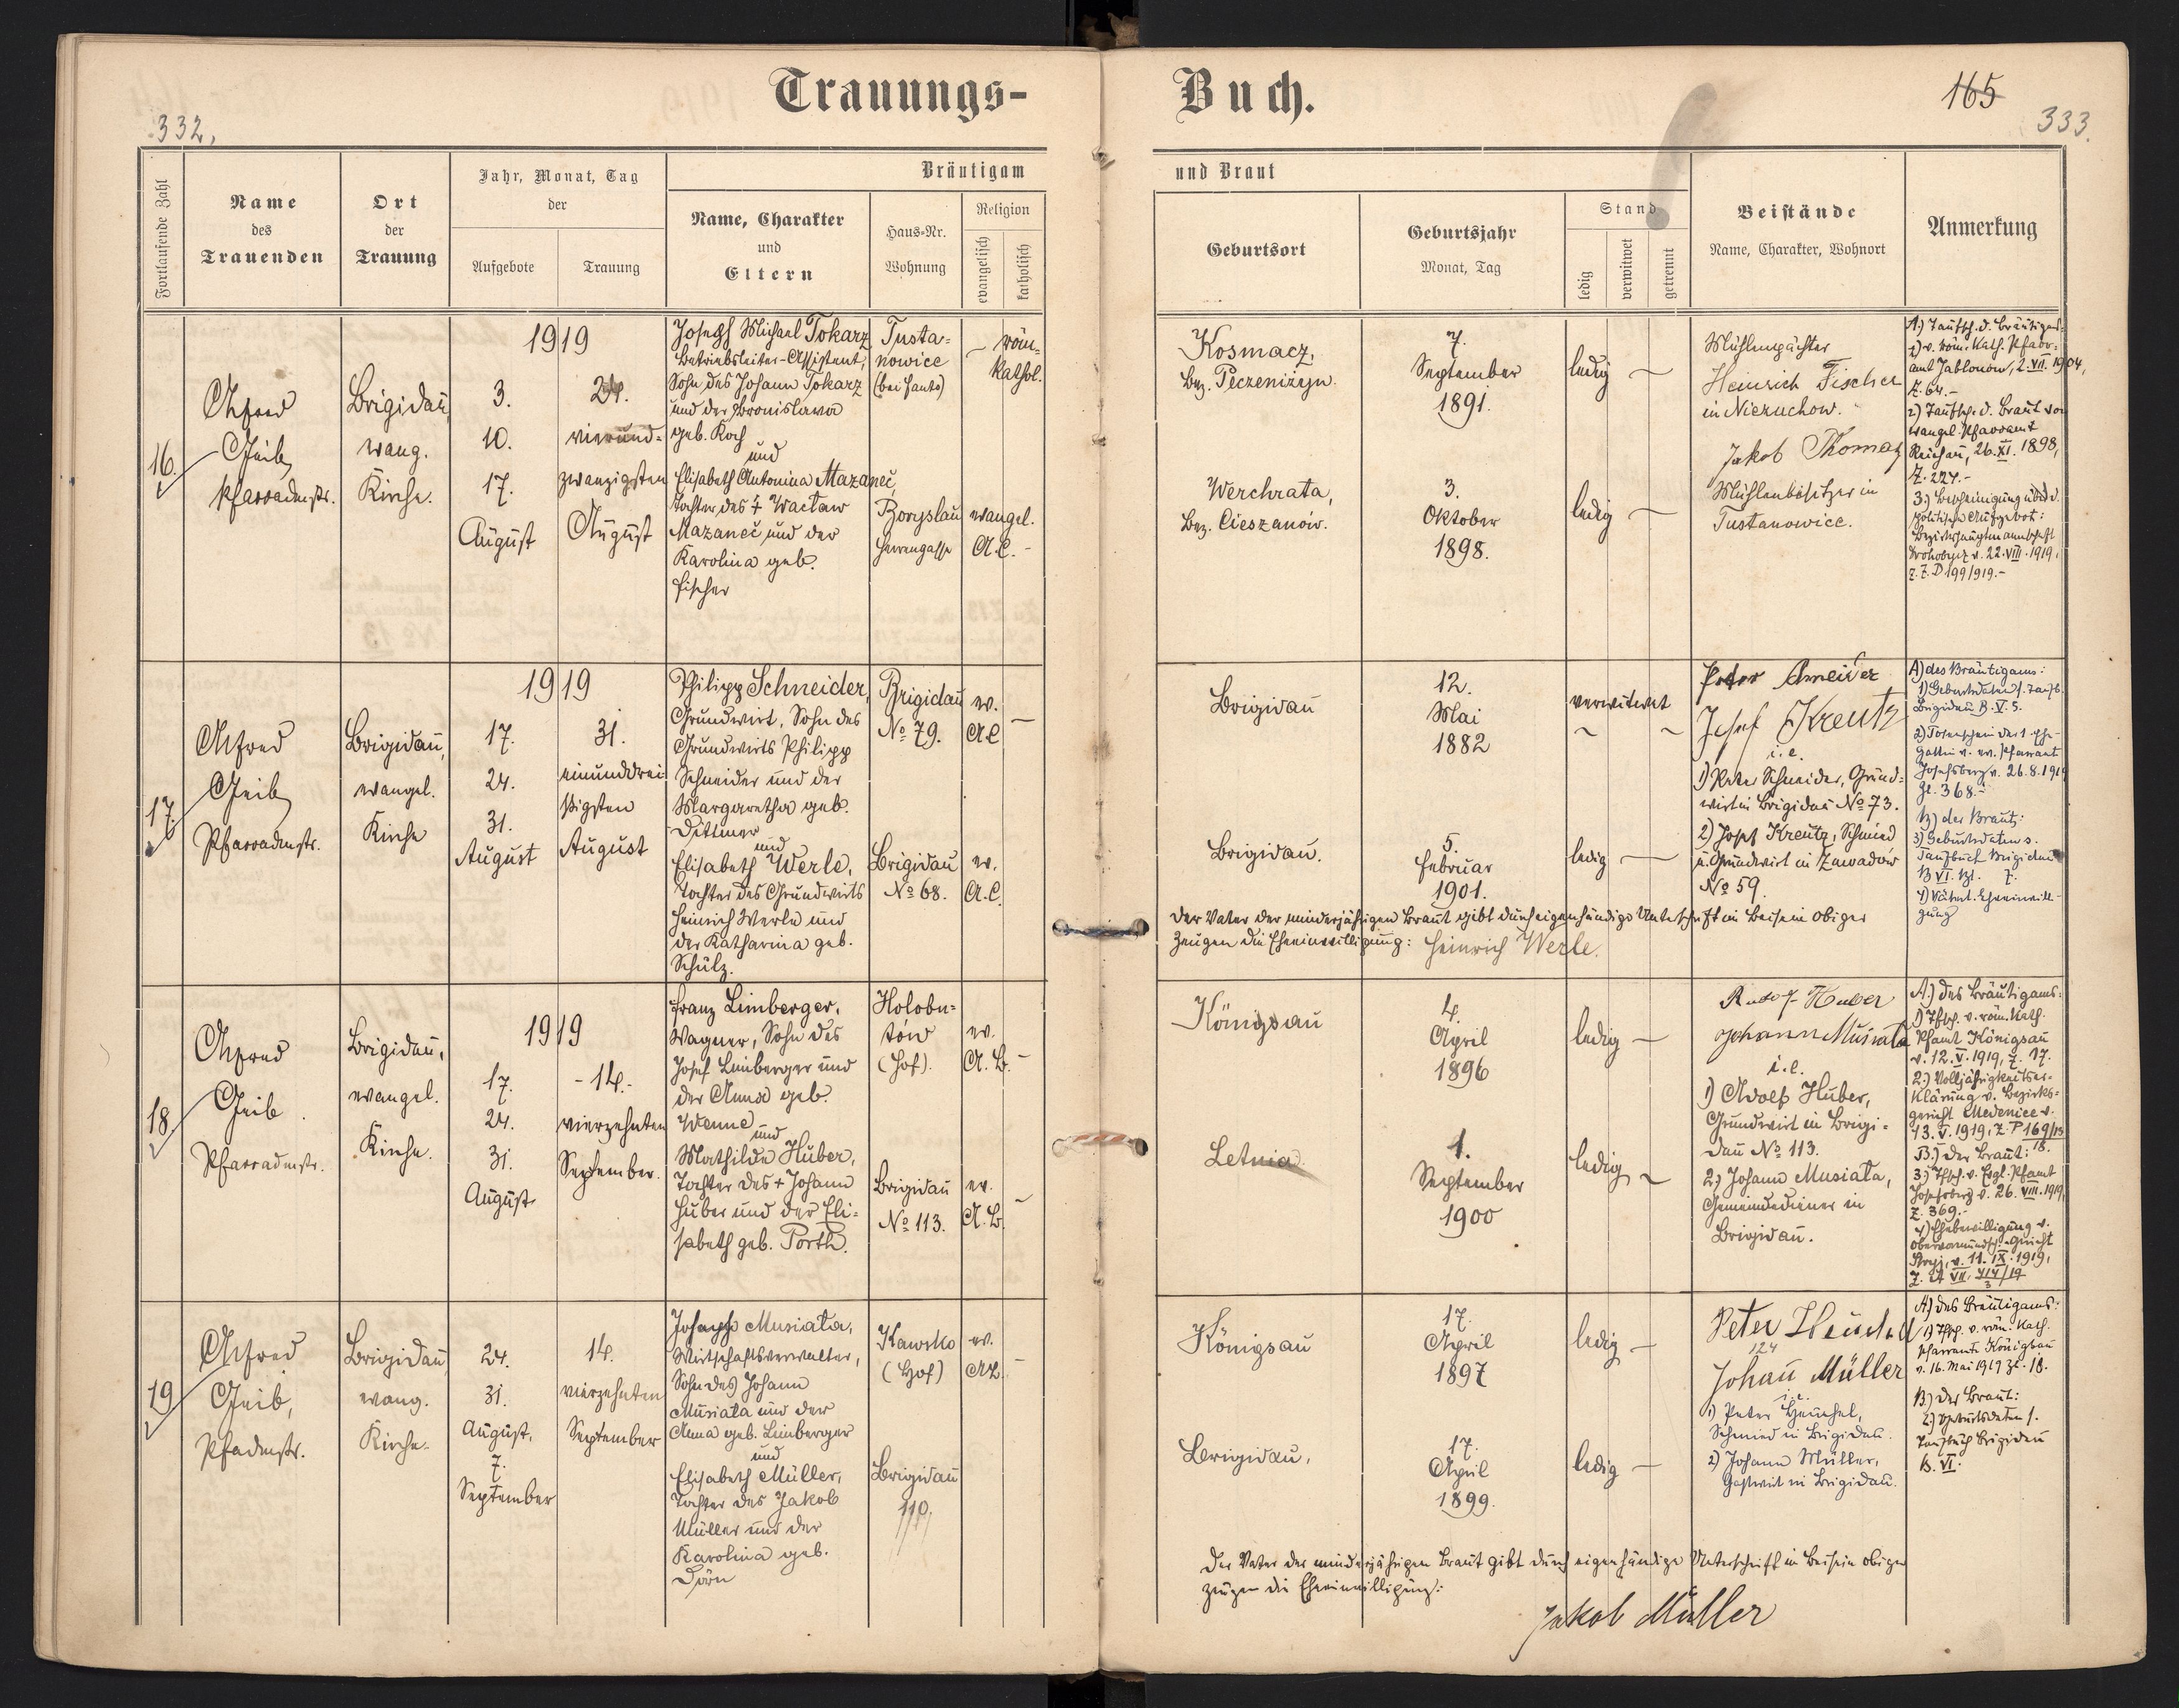 Trauungs-
Buch.
332.
165
333.
Fortlaufende Zahl
Name
des
Trauenden
Ort
der
Trauung
Jahr, Monat, Tag
der
Aufgebote
Trauung
Bräutigam
Name, Charakter
und
Eltern
Haus-Nr.
Wohnung
Religion
evangelisch
katholisch
und Braut
Geburtsort
Geburtsjahr
Monat, Tag
Stand
ledig
verwitwet
getrennt
Beistände
Name, Charakter, Wohnort
Anmerkung
16.
Alfred
Geib
Pfarradmstr.
Brigidau,
evang.
Kirche.
1919
3.
10.
17.
August
24.
vierund-
zwanzigsten
August
Joseph Michael Tokarz
Betriebsleiter-Assistent,
Sohn des Johann Tokarz
und der Bronislawa
geb. Koch
und
Elisabeth Antonina Mazaneč
Tochter des † Wacław
Mazaneč und der
Karolina geb.
Fischer
Tusta-
nowice
(bei Hante)
Boryslau
Herrengasse
röm.
kathol.
evangel.
A.C. -
Kosmacz,
Bez. Peczeniżyn.
Werchrata,
Bez. Cieszanów.
7.
September
1891.
3.
Oktober
1898.
ledig
ledig
Mühlenpächter
Heinrich Fischer
in Niezuchow.
Jakob Thomas
Mühlenbesitzer in
Tustanowice.
1.) Taufsch. d. Bräutigams
v. röm. kath. Pfarr-
amt Jablonow, 2.VII.1904,
Z. 64.-
2.) Taufsch. d. Braut vom
evangel. Pfarramt
Reichau, 26.XI.1898,
Z. 224.-
3.) Bescheinigung über d.
politische Aufgebot:
Bezirkshauptmannschaft
Drohobycz v. 22.VIII.1919,
z. Z. D 199/919.-
17.
Alfred
Geib
Pfarradmstr.
Brigidau,
evangel.
Kirche
1919
17.
24.
31.
August
31.
einunddrei-
ßigsten
August
Philipp Schneider,
Grundwirt, Sohn des
Grundwirts Philipp
Schneider und der
Margaretha geb.
Dittmer
und
Elisabeth Werle,
Tochter des Grundwirts
Heinrich Werle und
der Katharina geb.
Schülz.
Brigidau
No 79.
Brigidau
No 68.
ev.
A.C
ev.
A.C.
Brigidau
Brigidau.
12.
Mai
1882
5.
Februar
1901.
verwitwet
ledig
Peter Schneider
Josef Kreutz
i.e.
1) Peter Schneider, Grund-
wirt in Brigidau No 73.
2) Josef Kreutz, Schmied
u. Grundwirt in Zawadów
No 59.
A) des Bräutigams:
1) Geburtsdaten s. Taufb.
Brigidau B. V. 5.
2) Totenschein der 1. Ehe-
gattin v. ev. Pfarramt
Josefsberg v. 26.8.1919
Zl. 368.-
B) der Braut:
3) Geburtsdaten s.
Taufbuch Brigidau
B VI. Bl. 7.
4) Väterl. Eheeinwilli-
gung
Der Vater der minderjährigen Braut gibt durch eigenhändige Unterschrift im Beisein obiger
Zeugen die Eheeinwilligung: Heinrich Werle.
18.
Alfred
Geib
Pfarradmstr.
Brigidau,
evangel.
Kirche.
1919
17.
24.
31.
August
-14.-
vierzehnten
September.
Franz Limberger,
Wagner, Sohn des
Josef Limberger und
der Anna geb.
Wenne
und
Mathilde Huber,
Tochter des † Johann
Huber und der Eli-
sabeth geb. Porth.
Holobu-
tów
(Hof).
Brigidau
No 113.
ev.
A. B. -
ev.
A. B.
Königsau
Letnia.
4.
April
1896
1.
September
1900
ledig
ledig
Adolf Huber
Johann Musiała
i.e.
1) Adolf Huber,
Grundwirt in Brigi-
dau No 113.
2.) Johann Musiała,
Gemeindediener in
Brigidau.
A.) des Bräutigams:
1) Tfsch. v. röm. kath.
Pfamt Königsau
v. 12.V.1919, Z. 17.
2.) Volljährigkeitser-
klärung v. Bezirks-
gericht Medenice v.
13.V.1919, Z. P 169/13
18.
B.) der Braut:
3.) Tfsch. v. Evgl. Pfamt
Josefsberg v. 26.VIII.1919,
Z. 369.-
4) Ehebewilligung v.
obervormundsch. Gericht
Stryj, v. 11.IX.1919,
Z. A VII. 414/19
3
19.
Alfred
Geib,
Pfadmstr.
Brigidau
evang.
Kirche.
24.
31.
August,
7.
September
14.
vierzehnten
September
Joseph Musiała,
Wirtschaftsverwalter,
Sohn des Johann
Musiała und der
Anna geb. Limberger
und
Elisabeth Müller,
Tochter des Jakob
Müller und der
Karolina geb.
Dörn
Kawsko
(Hof)
Brigidau
110.
ev.
AB.
Königsau
Brigidau,
17.
April
1897
17.
April
1899.
ledig
ledig
Peter Heuchel
124
Johann Müller
i.e.
1) Peter Heuchel,
Schmied in Brigidau.
2) Johann Müller,
Gastwirt in Brigidau.
A) des Bräutigams:
1) Tfsch. v. röm. kath.
Pfarramte Königsau
v. 16. Mai 1919 Zl. 18.
B) der Braut:
2) Geburtsdaten s.
Taufbuch Brigidau
B. VI.
Der Vater der minderjährigen Braut gibt durch eigenhändige Unterschrift im Beisein obiger
Zeugen die Eheeinwilligung:
Jakob Müller